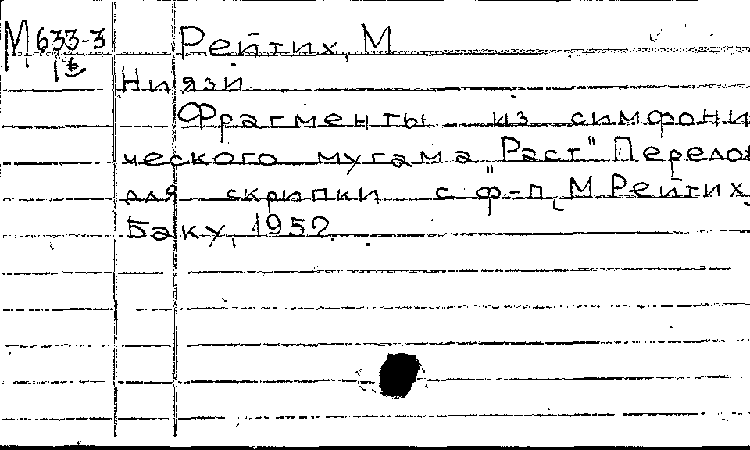 М 633-3 Рейтих, М
Ниязи
Фрагменты из симфони
ческого мугама "Раст" Перелож
для скрипки с ф-п М. Рейтих,
Баку, 1952.